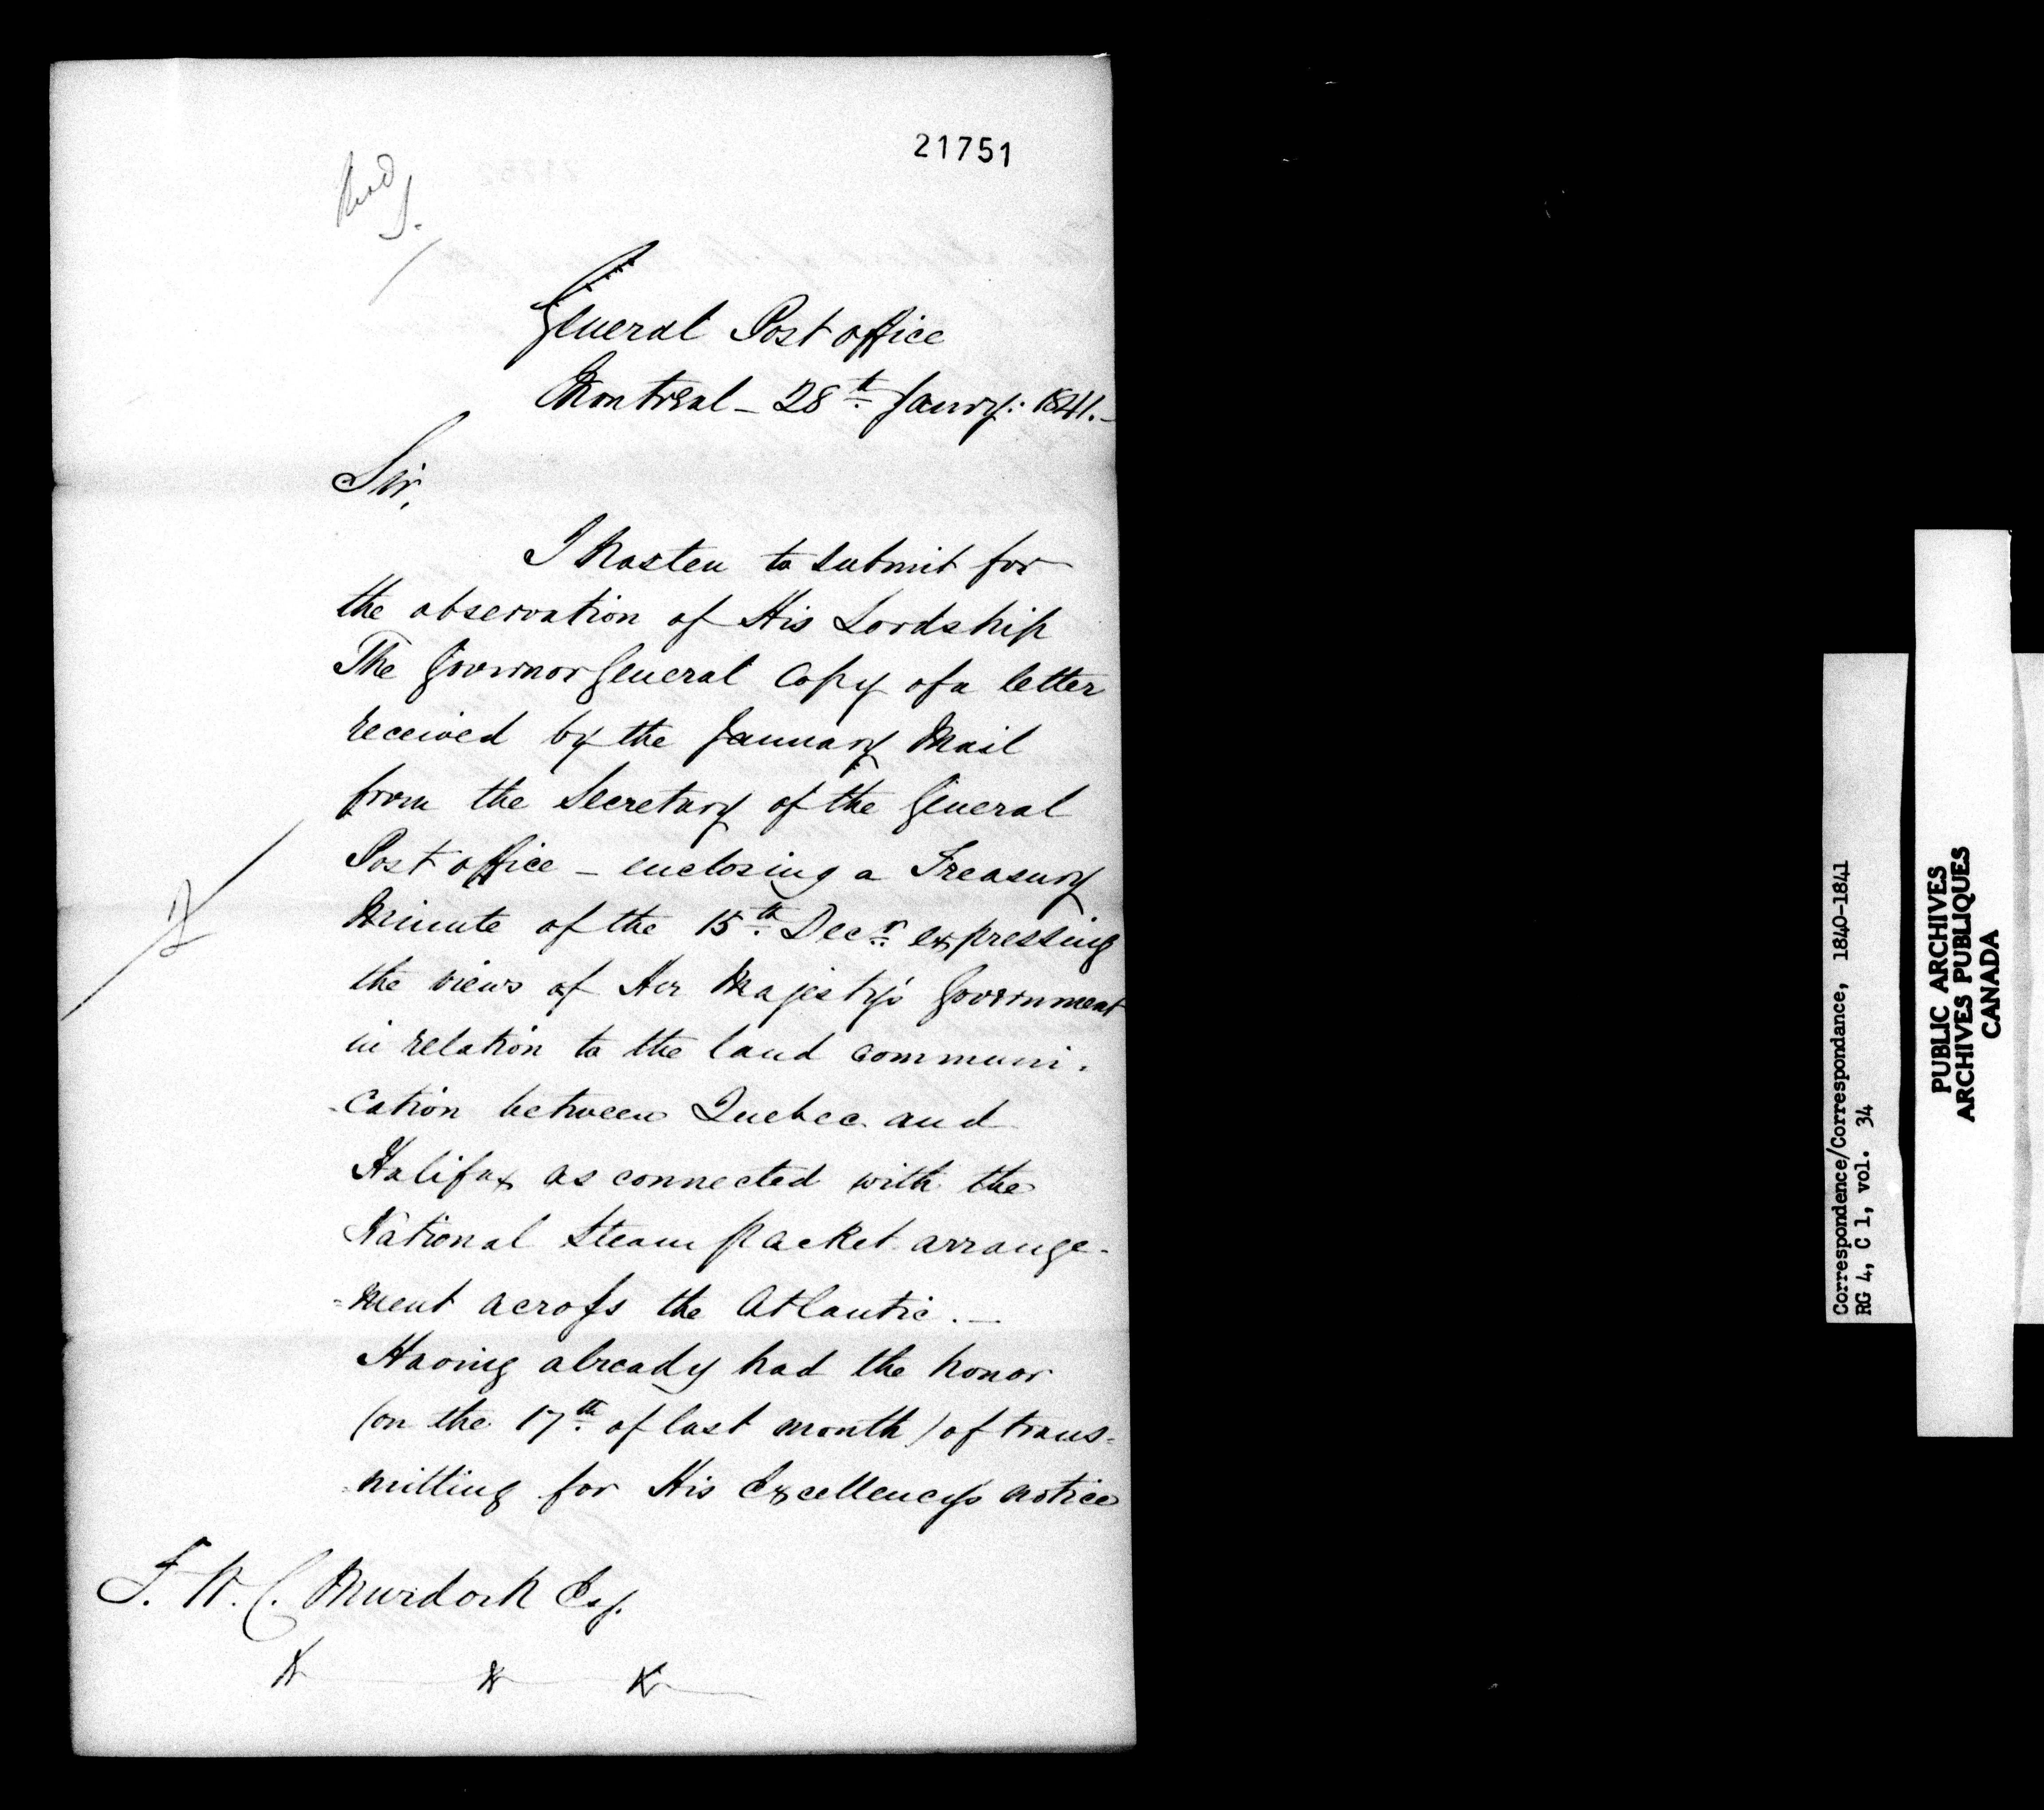 21751
General Post office
Montreal – 28th Janry: 1841.–
Sir,
I hasten to submit for
the observation of His Lordship
The Governor General Copy of a letter
received by the January Mail
from the Secretary of the General
Post office – enclosing a Treasury
Minute of the 15th Decr. expressing
the views of Her Majesty's Government
in relation to the land communi-
-cation between Quebec and
Halifax as connected with the
National Steam packet arrange-
=ment across the Atlantic. –
Having already had the honor
(on the 17th of last month) of trans-
-mitting for His Excellency's notice
F. W. C. Murdoch Esq.
Correspondence/Correspondance, 1840-1841
RG 4, C 1, vol. 34
PUBLIC ARCHIVES
ARCHIVES PUBLIQUES
CANADA